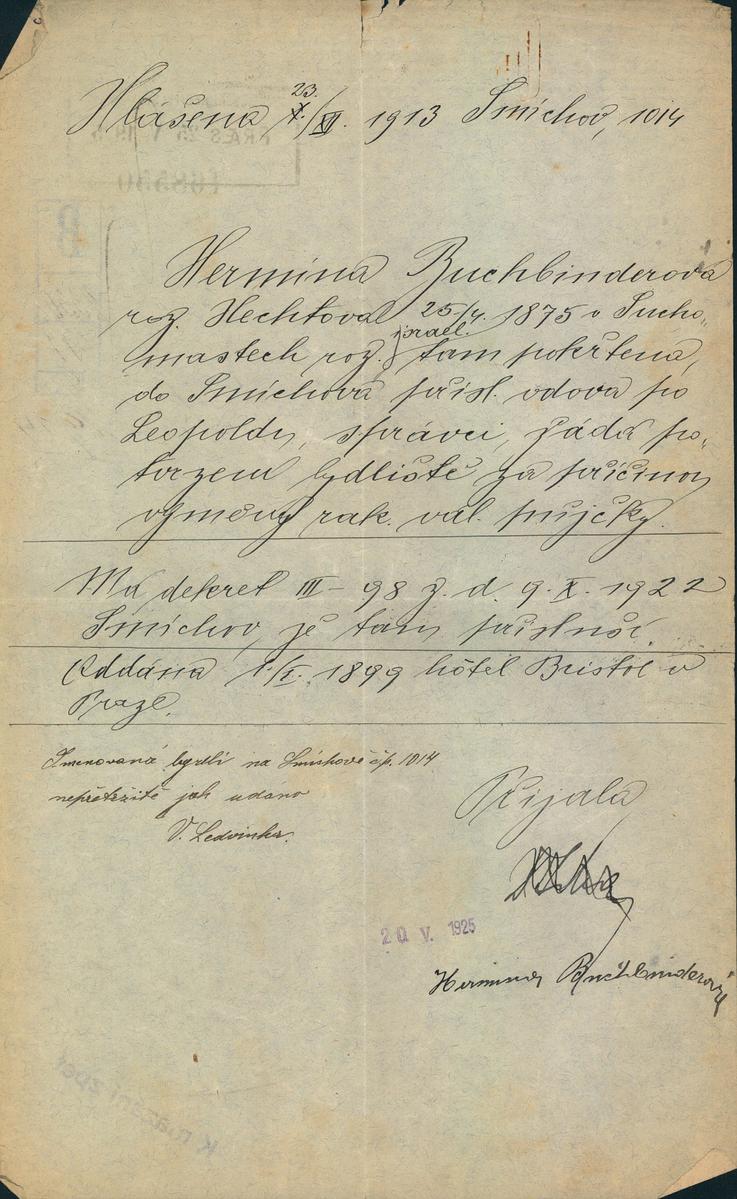 Hlášena 23./XII. 1913 Smíchov, 1014
Hermina Buchbinderová
roz. Hechtová 25/4. 1875 v Sucho-
mastech roz. israel. tam pokřtěná,
do Smíchova přísl. vdova po
Leopoldu, správci, žádá po-
tvrzení bydliště za příčinou
výměny rak. vál. půjčky.
Má dekret III - 98 z. d. 9. X. 1922
Smíchov, je tam příslušná.
Oddána 1./I. 1899 hôtel Bristol v
Praze.
Jmenovaná bydlí na Smíchově čp. 1014
nepřetržitě jak udáno
V. Ledvinka.
Přijala
20 V. 1925
Hermina Buchbinderová